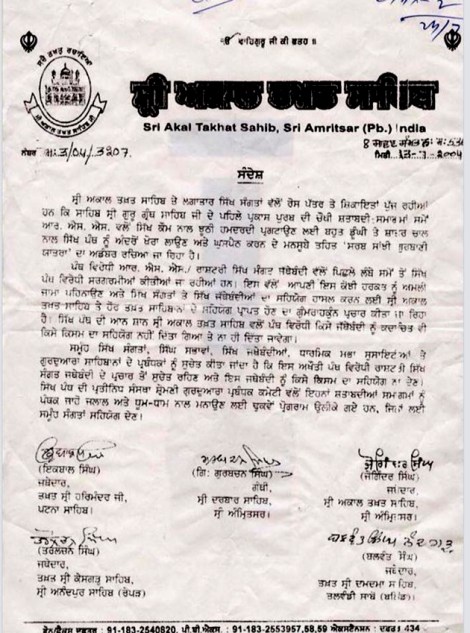 ੴ ਵਾਹਿਗੁਰੂ ਜੀ ਕੀ ਫਤਹ ॥
ਸ੍ਰੀ ਅਕਾਲ ਤਖਤ ਸਾਹਿਬ
Sri Akal Takhat Sahib, Sri Amritsar (Pb.) India
ਨੰਬਰ ਅ:3/04/3207.
ਮਿਤੀ 13-7-2004
ਸੰਦੇਸ਼
ਸ੍ਰੀ ਅਕਾਲ ਤਖ਼ਤ ਸਾਹਿਬ ਤੇ ਲਗਾਤਾਰ ਸਿੱਖ ਸੰਗਤਾਂ ਵੱਲੋਂ ਰੋਸ ਪੱਤਰ ਤੇ ਸ਼ਿਕਾਇਤਾਂ ਪੁੱਜ ਰਹੀਆਂ
ਹਨ ਕਿ ਸਾਹਿਬ ਸ੍ਰੀ ਗੁਰੂ ਗ੍ਰੰਥ ਸਾਹਿਬ ਜੀ ਦੇ ਪਹਿਲੇ ਪ੍ਰਕਾਸ਼ ਪੁਰਬ ਦੀ ਚੌਥੀ ਸ਼ਤਾਬਦੀ ਸਮਾਗਮਾਂ ਸਮੇਂ
ਆਰ. ਐਸ. ਐਸ. ਵਲੋਂ ਸਿੱਖ ਕੌਮ ਨਾਲ ਝੂਠੀ ਹਮਦਰਦੀ ਪ੍ਰਗਟਾਉਣ ਲਈ ਬਹੁਤ ਡੂੰਘੀ ਤੇ ਸ਼ਾਤਰ ਚਾਲ
ਨਾਲ ਸਿੱਖ ਪੰਥ ਨੂੰ ਅੰਦਰੋਂ ਖੋਰਾ ਲਾਉਣ ਅਤੇ ਘੁਸਪੈਠ ਕਰਨ ਦੇ ਮਨਸੂਬੇ ਤਹਿਤ 'ਸਰਬ ਸਾਂਝੀ ਗੁਰਬਾਣੀ
ਯਾਤਰਾ' ਦਾ ਅਡੰਬਰ ਰਚਿਆ ਜਾ ਰਿਹਾ ਹੈ।
ਪੰਥ ਵਿਰੋਧੀ ਆਰ. ਐਸ. ਐਸ./ ਰਾਸ਼ਟਰੀ ਸਿੱਖ ਸੰਗਤ ਜੱਥੇਬੰਦੀ ਵਲੋਂ ਪਿਛਲੇ ਲੰਬੇ ਸਮੇਂ ਤੋਂ ਸਿੱਖ
ਪੰਥ ਵਿਰੋਧੀ ਸਰਗਰਮੀਆਂ ਕੀਤੀਆਂ ਜਾ ਰਹੀਆਂ ਹਨ। ਇਸ ਵੱਲੋਂ ਆਪਣੀ ਇਸ ਕੋਝੀ ਹਰਕਤ ਨੂੰ ਅਮਲੀ
ਜਾਮਾ ਪਹਿਨਾਉਣ ਅਤੇ ਸਿੱਖ ਸੰਗਤਾਂ ਤੇ ਸਿੱਖ ਜੱਥੇਬੰਦੀਆਂ ਦਾ ਸਹਿਯੋਗ ਹਾਸਲ ਕਰਨ ਲਈ ਸ੍ਰੀ ਅਕਾਲ
ਤਖ਼ਤ ਸਾਹਿਬ ਤੇ ਹੋਰ ਤਖ਼ਤ ਸਾਹਿਬਾਨਾਂ ਦੇ ਸਹਿਯੋਗ ਪ੍ਰਾਪਤ ਹੋਣ ਦਾ ਗੁੰਮਰਾਹਕੁੰਨ ਪ੍ਰਚਾਰ ਕੀਤਾ ਜਾ ਰਿਹਾ
ਹੈ। ਸਿੱਖ ਪੰਥ ਦੀ ਆਨ ਸ਼ਾਨ ਸ੍ਰੀ ਅਕਾਲ ਤਖ਼ਤ ਸਾਹਿਬ ਵਲੋਂ ਪੰਥ ਵਿਰੋਧੀ ਕਿਸੇ ਜੱਥੇਬੰਦੀ ਨੂੰ ਕਦਾਚਿੱਤ ਵੀ
ਕਿਸੇ ਕਿਸਮ ਦਾ ਸਹਿਯੋਗ ਨਹੀਂ ਦਿੱਤਾ ਗਿਆ ਤੇ ਨਾ ਹੀ ਦਿੱਤਾ ਜਾਵੇਗਾ।
ਸਮੂੰਹ ਸਿੱਖ ਸੰਗਤਾਂ, ਸਿੰਘ ਸਭਾਵਾਂ, ਸਿੱਖ ਜਥੇਬੰਦੀਆਂ, ਧਾਰਮਿਕ ਸਭਾ ਸੁਸਾਇਟੀਆਂ ਤੇ
ਗੁਰਦੁਆਰਾ ਸਾਹਿਬਾਨਾਂ ਦੇ ਪ੍ਰਬੰਧਕਾਂ ਨੂੰ ਸੁਚੇਤ ਕੀਤਾ ਜਾਂਦਾ ਹੈ ਕਿ ਇਸ ਅਖੌਤੀ ਪੰਥ ਵਿਰੋਧੀ ਰਾਸ਼ਟਰੀ ਸਿੱਖ
ਸੰਗਤ ਜੱਥੇਬੰਦੀ ਦੇ ਪ੍ਰਚਾਰ ਤੋਂ ਸੁਚੇਤ ਰਹਿਣ ਅਤੇ ਇਸ ਜਥੇਬੰਦੀ ਨੂੰ ਕਿਸੇ ਕਿਸਮ ਦਾ ਸਹਿਯੋਗ ਨਾ ਦੇਣ।
ਸਿੱਖ ਪੰਥ ਦੀ ਪ੍ਰਤੀਨਿਧ ਸੰਸਥਾ ਸ਼੍ਰੋਮਣੀ ਗੁਰਦੁਆਰਾ ਪ੍ਰਬੰਧਕ ਕਮੇਟੀ ਵਲੋਂ ਇਹਨਾਂ ਸ਼ਤਾਬਦੀਆਂ ਸਮਾਗਮਾਂ ਨੂੰ
ਪੰਥਕ ਜਾਹੋ ਜਲਾਲ ਅਤੇ ਧੂਮ-ਧਾਮ ਨਾਲ ਮਨਾਉਣ ਲਈ ਢੁਕਵੇਂ ਪ੍ਰੋਗਰਾਮ ਉਲੀਕੇ ਗਏ ਹਨ, ਜਿਨ੍ਹਾਂ ਲਈ
ਸਮੂੰਹ ਸੰਗਤਾਂ ਸਹਿਯੋਗ ਦੇਣ।
(ਇਕਬਾਲ ਸਿੰਘ)
ਜਥੇਦਾਰ,
ਤਖ਼ਤ ਸ੍ਰੀ ਹਰਿਮੰਦਰ ਜੀ,
ਪਟਨਾ ਸਾਹਿਬ।
(ਗਿ: ਗੁਰਬਚਨ ਸਿੰਘ)
ਗ੍ਰੰਥੀ,
ਸ੍ਰੀ ਦਰਬਾਰ ਸਾਹਿਬ,
ਸ੍ਰੀ ਅੰਮ੍ਰਿਤਸਰ।
(ਜੋਗਿੰਦਰ ਸਿੰਘ)
ਜਥੇਦਾਰ,
ਸ੍ਰੀ ਅਕਾਲ ਤਖ਼ਤ ਸਾਹਿਬ,
ਸ੍ਰੀ ਅੰਮ੍ਰਿਤਸਰ।
(ਤਰਲੋਚਨ ਸਿੰਘ)
ਜਥੇਦਾਰ,
ਤਖ਼ਤ ਸ੍ਰੀ ਕੇਸਗੜ੍ਹ ਸਾਹਿਬ,
ਸ੍ਰੀ ਅਨੰਦਪੁਰ ਸਾਹਿਬ (ਰੋਪੜ)
(ਬਲਵੰਤ ਸਿੰਘ)
ਜਥੇਦਾਰ,
ਤਖ਼ਤ ਸ੍ਰੀ ਦਮਦਮਾ ਸਾਹਿਬ,
ਤਲਵੰਡੀ ਸਾਬੋ (ਬਠਿੰਡਾ)
ਫੋਨ/ਫੈਕਸ ਦਫਤਰ : 91-183-2540820, ਪੀ.ਬੀ.ਐਕਸ. : 91-183-2553957,58,59 ਐਕਸਟੈਨਸ਼ਨ : ਦਫਤਰ 434